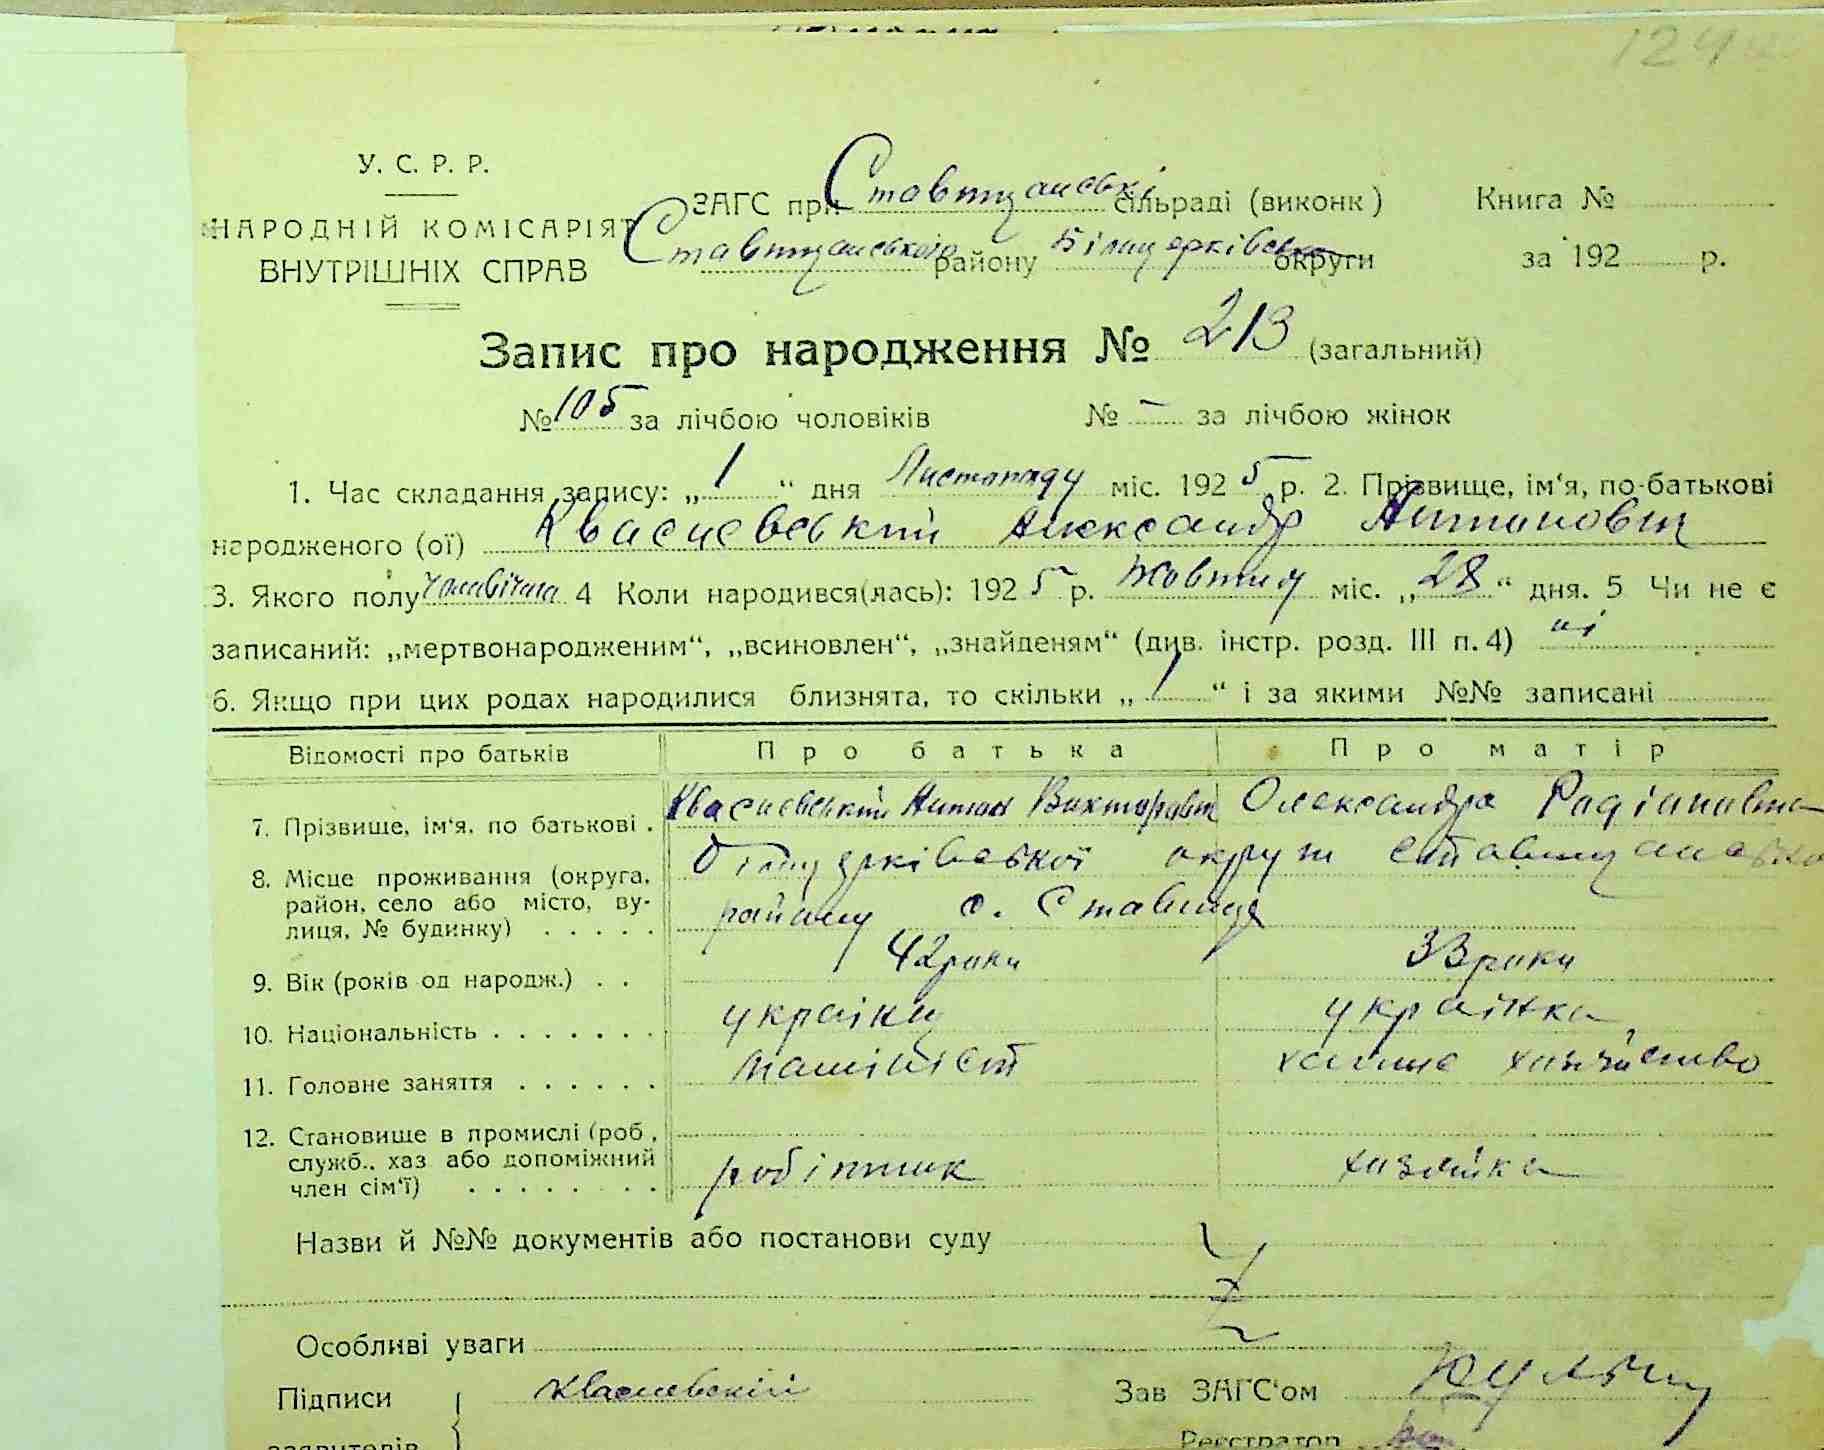 124
У. С. Р. Р.
НАРОДНІЙ КОМІСАРІЯТ
ВНУТРІШНІХ СПРАВ
ЗАГС при Ставищанські сільраді (виконк)
Ставищанського району Білицерківсько округи
Книга №
за 192 р.
Запис про народження № 213 (загальний)
№ 105 за лічбою чоловіків № – за лічбою жінок
1. Час складання запису: „ 1 “ дня Листопаду міс. 192 5 р. 2. Прізвище, ім‘я, по-батькові
народженого (ої) Квасневський Александр Антонович
3. Якого полу чоловічого 4 Коли народився(лась): 192 5 р. Жовтня міс. „ 28 “ дня. 5 Чи не є
записаний: „мертвонародженим“, „всиновлен“, „знайденям“ (див. інстр. розд. III п. 4) ні
6. Якщо при цих родах народилися близнята, то скільки „ / “ і за якими №№ записані
Відомості про батьків Про батька Про матір
7. Прізвише, ім‘я, по батькові . Квасневський Антон Викторович Олександра Радіановна
8. Місце проживання (округа, район, село або місто, вулиця, № будинку) . . . . . Білицерківської округи Ставищансько
району с. Ставища
9. Вік (років од народж.) . . 42 роки 33 роки
10. Національність . . . . . . . україни українка
11. Головне заняття . . . . . . машініст хатне хазяйство
12. Становище в промислі (роб., служб., хаз або допоміжний член сім‘ї) . . . . . . . . робітник хазяйка
Назви й №№ документів або постанови суду
Особливі уваги
Підписи Квасневский Зав ЗАГС‘ом
заявителів Реєстратор